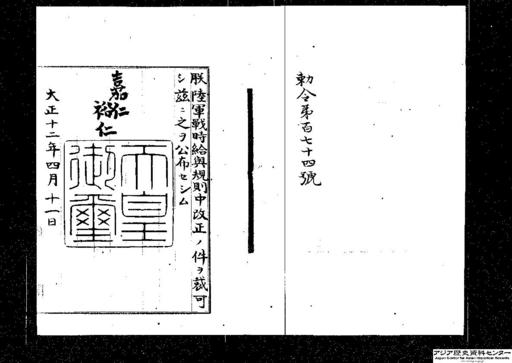 勅令第百七十四號
朕陸軍戰時給與規則中改正ノ件ヲ裁可
シ茲ニ之ヲ公布セシム
嘉仁
裕仁
天皇
御璽
大正十二年四月十一日
アジア歴史資料センター
Japan Center for Asian Historical Records